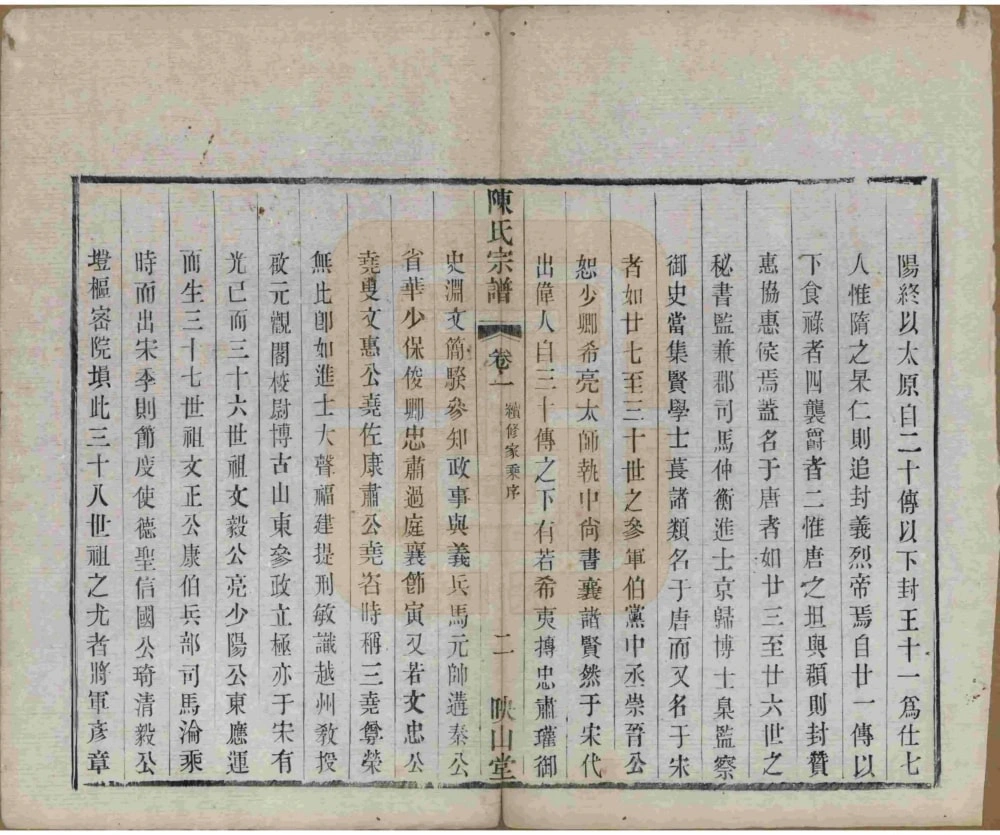 陽終以太原自二十傳以下封王十一爲仕七
人惟隋之杲仁則追封義烈帝焉自廿一傳以
下食祿者四襲爵者二惟唐之坦與顗則封贊
惠協惠侯焉蓋名于唐者如廿三至廿六世之
秘書監兼郡司馬仲衡進士京歸博士臬監察
御史當集賢學士萇諸類名于唐而又名于宋
者如廿七至三十世之參軍伯黨中丞崇晉公
恕少卿希亮太師執中尚書襄諸賢然于宋代
出偉人自三十傳之下有若希夷摶忠肅瓘御
陳氏宗譜
卷一
續修家乘序
二
映山堂
史淵文簡騤參知政事與義兵馬元帥遘秦公
省華少保俊卿忠肅過庭襄飾寅又若文忠公
堯叟文惠公堯佐康肅公堯咨時稱三堯尊榮
無比卽如進士大聲福建提刑敏識越州教授
敵元觀閣校尉博古山東參政立極亦于宋有
光已而三十六世祖文毅公亮少陽公東應運
而生三十七世祖文正公康伯兵部司馬淪乘
時而出宋季則節度使德聖信國公琦清毅公
塏樞密院塤此三十八世祖之尤者將軍彥章